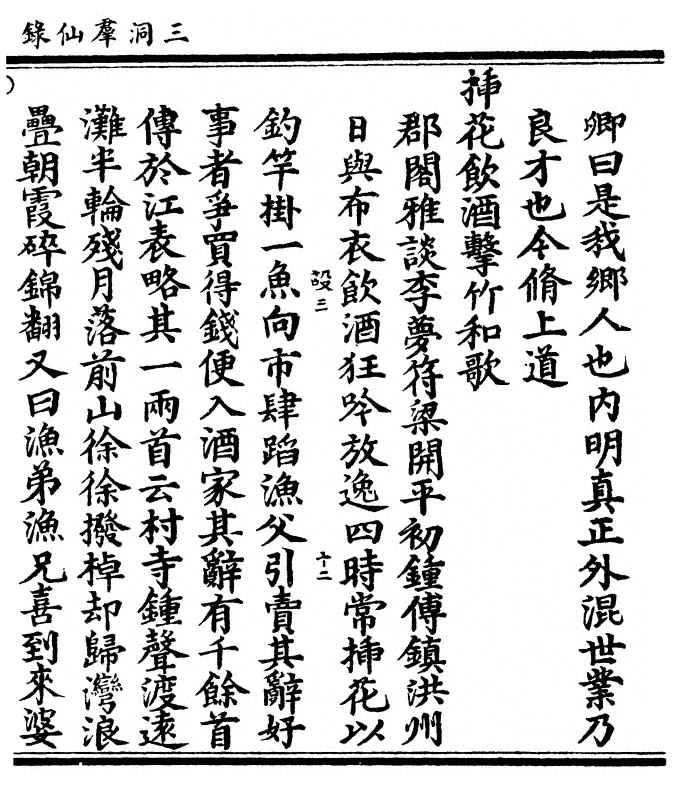 三洞羣仙錄
卿曰是我鄉人也內明真正外混世業乃
良才也今脩上道
挿花飲酒擊竹和歌
郡閣雅談李夢符梁開平初鍾傅鎮洪州
日與布衣飲酒狂吟放逸四時常挿花以
設三
十二
釣竿掛一魚向市肆蹈漁父引賣其辭好
事者爭買得錢便入酒家其辭有千餘首
傳於江表略其一兩首云村寺鍾聲渡遠
灘半輪殘月落前山徐徐撥棹却歸灣浪
疊朝霞碎錦翻又曰漁弟漁兄喜到來婆